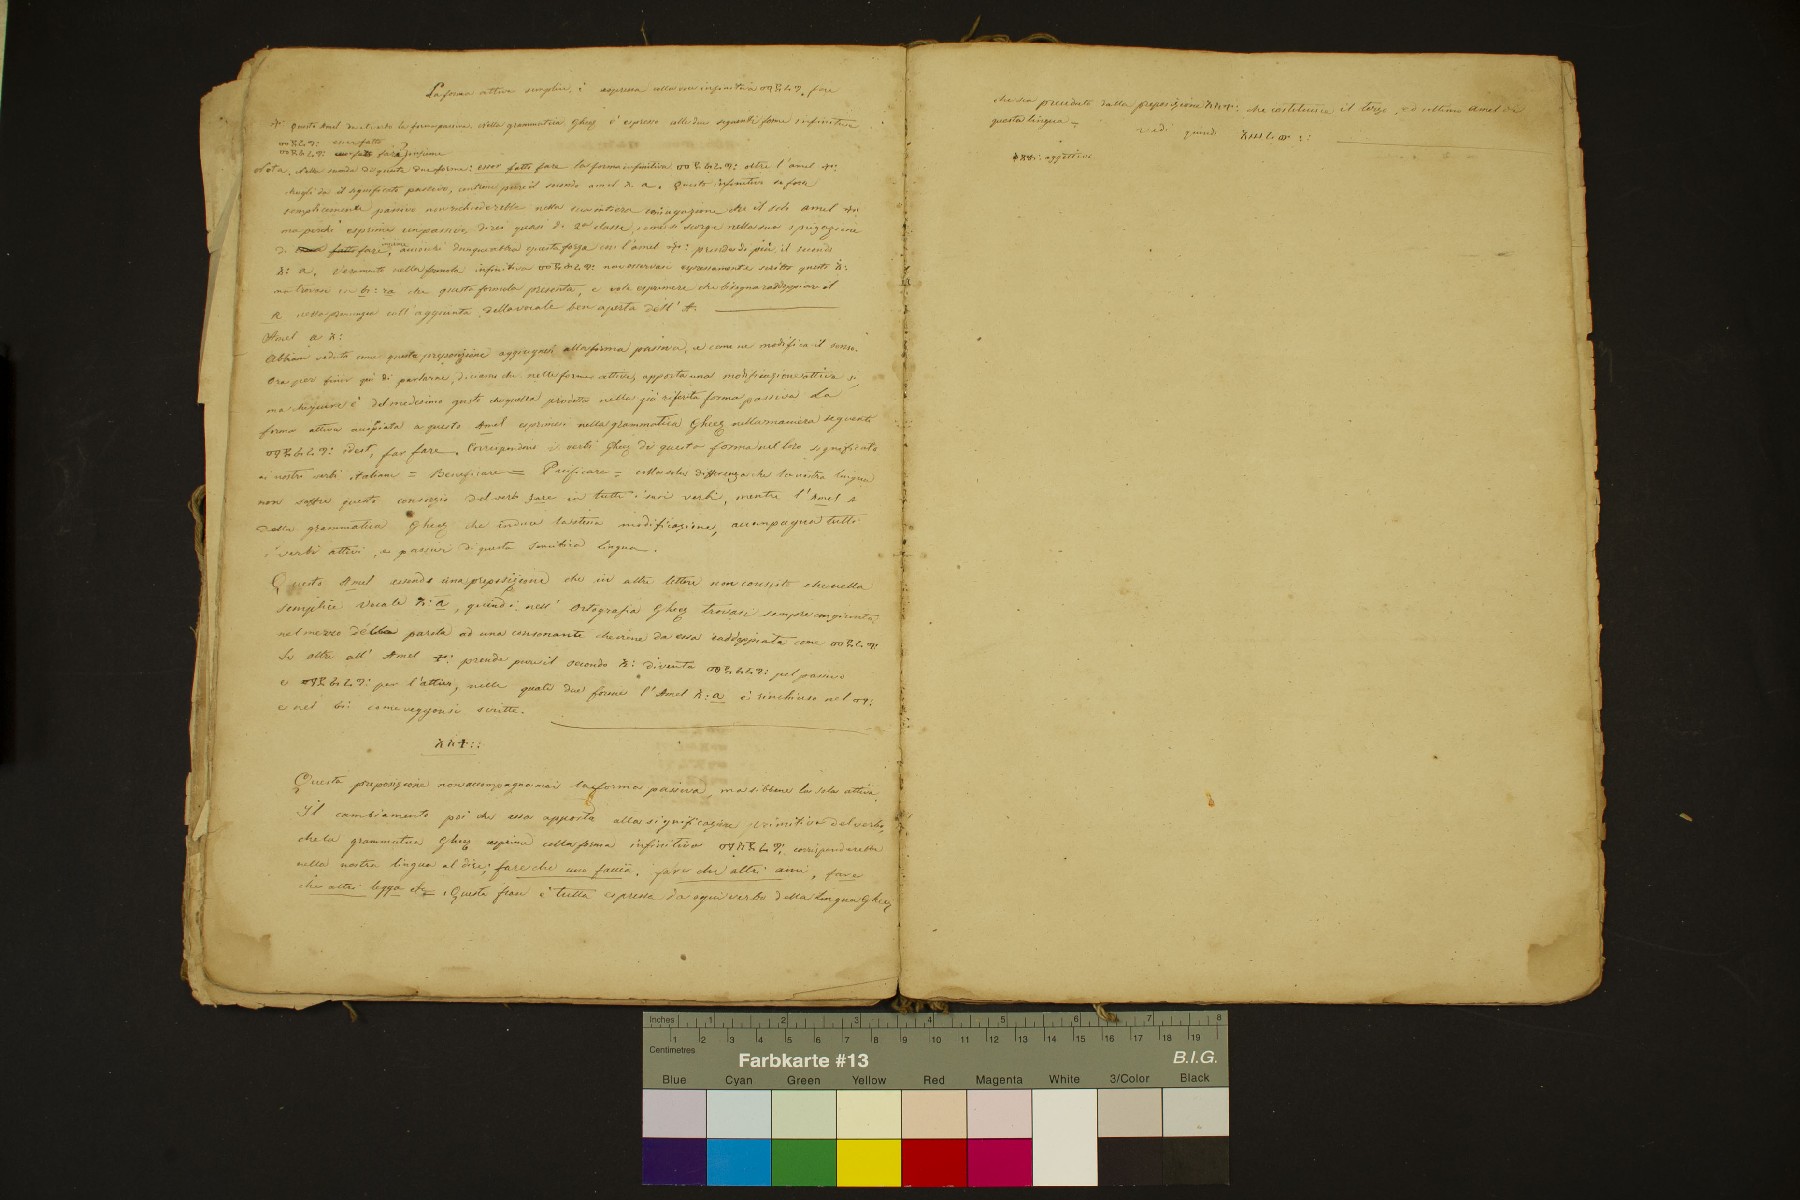 La forma attiva semplice, è espressa colla voce infinitiva fare
Questo Amel da al verbo la forma passiva. Nella grammatica Gheez è espresso colle due seguenti forme infinitive
esser fatto
fare insieme
Nota. Nella seconda di queste due forme: esser fatto fare la forma infinitiva oltre l'amel ተ፡
che gli dà il significato passivo, contiene pure il secondo amel አ a. Questo infinitivo se fosse
semplicemente passivo non richiederebbe nella sua intiera coniugazione che il solo Amel ተ፡
ma perchè esprime un passivo, direi quasi di 2ª classe, come si scorge nella sua spiegazione
di fatto fare insieme, conviene dunque abbia questa forza con l'amel ተ፡ prendendo di più il secondo
አ፡ a. Veramente nella formola infinitiva non osservasi espressamente scritto questo አ፡
ma trovasi in ra che questa formola presenta, e vole esprimere che bisogna raddoppiar il
R nella pronunzia coll'aggiunta della vocale ben aperta dell'A.
Amel a አ፡
Abbiam veduto come questa preposizione aggiungasi alla forma passiva, e come ne modifica il senso.
Ora per finir quì di parlarne, diciamo che nelle forme attive, apporta una modificazione attiva si,
ma che pure è del medesimo gusto che quella prodotta nella già riferita forma passiva. La
forma attiva accoppiata a questo Amel esprimesi nella grammatica Gheez nella maniera seguente
idest, far fare. Corrispondono i verbi Gheez di questa forma nel loro significato
ai nostri verbi italiani = Beneficare = Pacificare = colla sola differenza che la nostra lingua
non soffre questo consorzio del verbo fare in tutti i suoi verbi, mentre l'Amel a
della grammatica Gheez che induce la stessa modificazione, accompagna tutti
i verbi attivi, e passivi di questa semitica Lingua.
Questo Amel essendo una preposizione che in altre lettere non consiste che nella
semplice vocale አ፡ a, quindi nell'Ortografia Gheez trovasi sempre congiunta,
nel mezzo della parola ad una consonante che viene da essa raddoppiata come
Se oltre all'Amel ተ፡ prende pure il secondo አ፡ diventa pel passivo
e per l'attivo, nelle quali due forme l'Amel አ፡ a è rinchiuso nel
e nel come veggonsi scritte.
አስተ፡፡
Questa preposizione non accompagna mai la forma passiva, ma sibbene la sola attiva.
Il cambiamento poi che essa apporta alla significazione primitiva del verbo,
che la grammatica Gheez esprime colla forma infinitiva corrisponderebbe
nella nostra lingua al dire; fare che uno faccia, fare che altri ami, fare
che altri legga etc. Questa frase è tutta espressa da ogni verbo della Lingua Gheez
che sia preceduto dalla preposizione አስተ፡ che costituisce il terzo, ed ultimo Amel di
questa lingua = vedi quindi
aggettivo